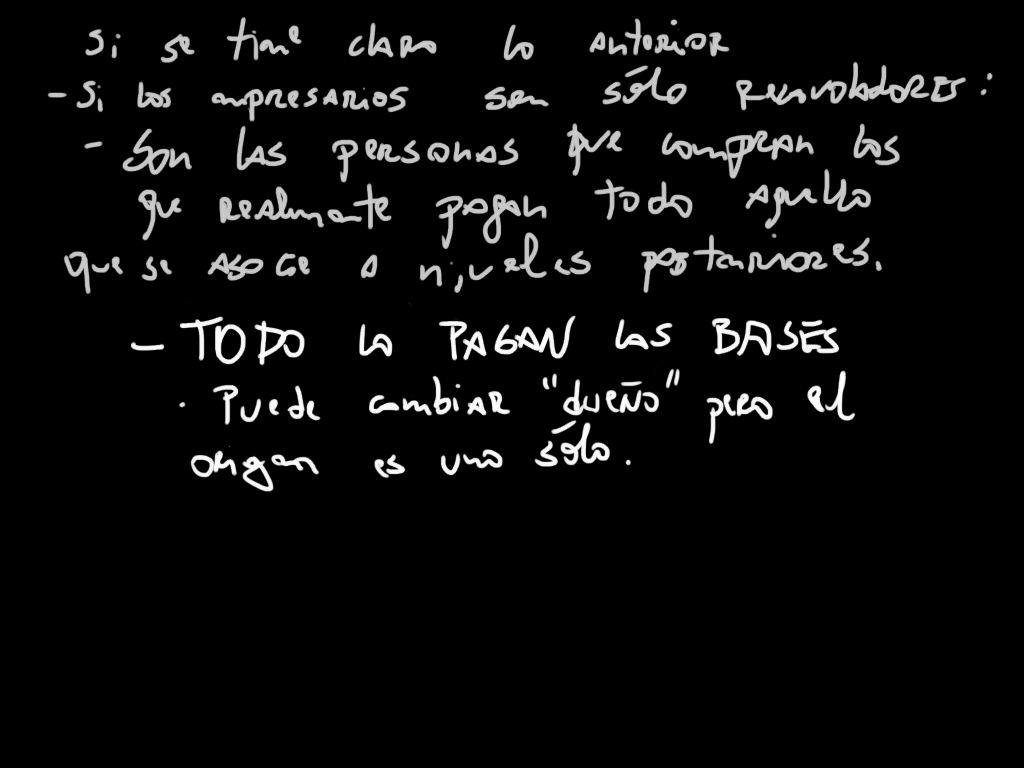 Si se tiene claro lo anterior
- Si los empresarios son sólo
- Son las personas que compran los
que realmente pagan todo aquello
que se asocie a niveles posteriores.
- TODO lo PAGAN las BASES
· Puede cambiar "dueño" pero el
origen es uno sólo.